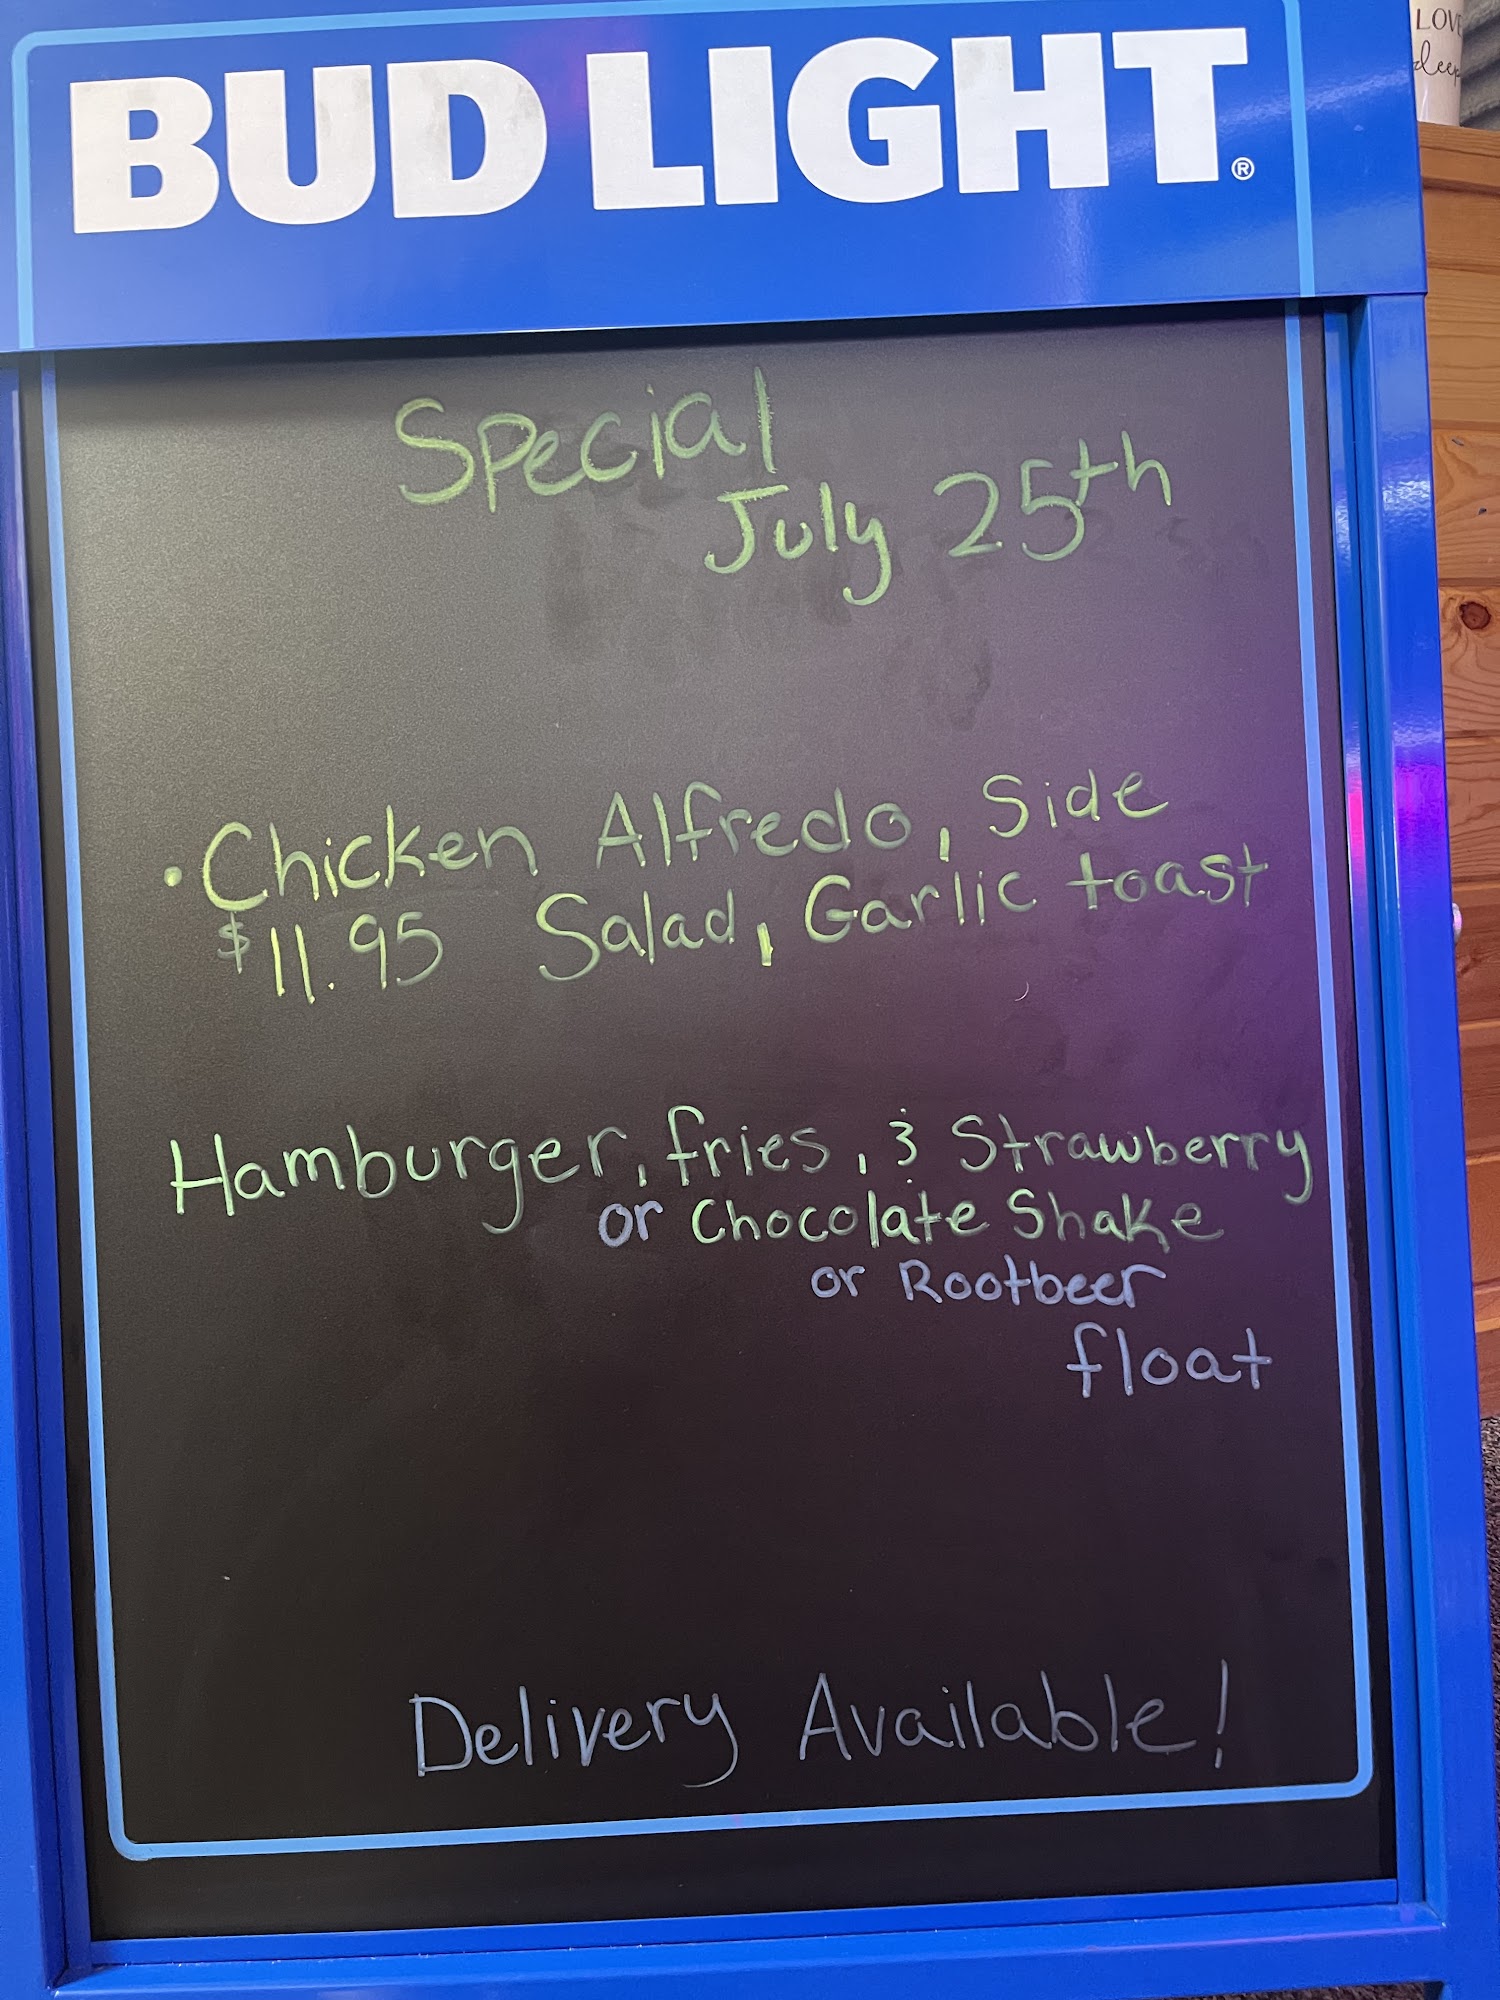 BUD LIGHT®
LOVE
Special
July 25th
• Chicken Alfredo, Side
$11.95 Salad, Garlic toast
Hamburger, fries, & Strawberry
or Chocolate Shake
or Rootbeer
float
Delivery Available!